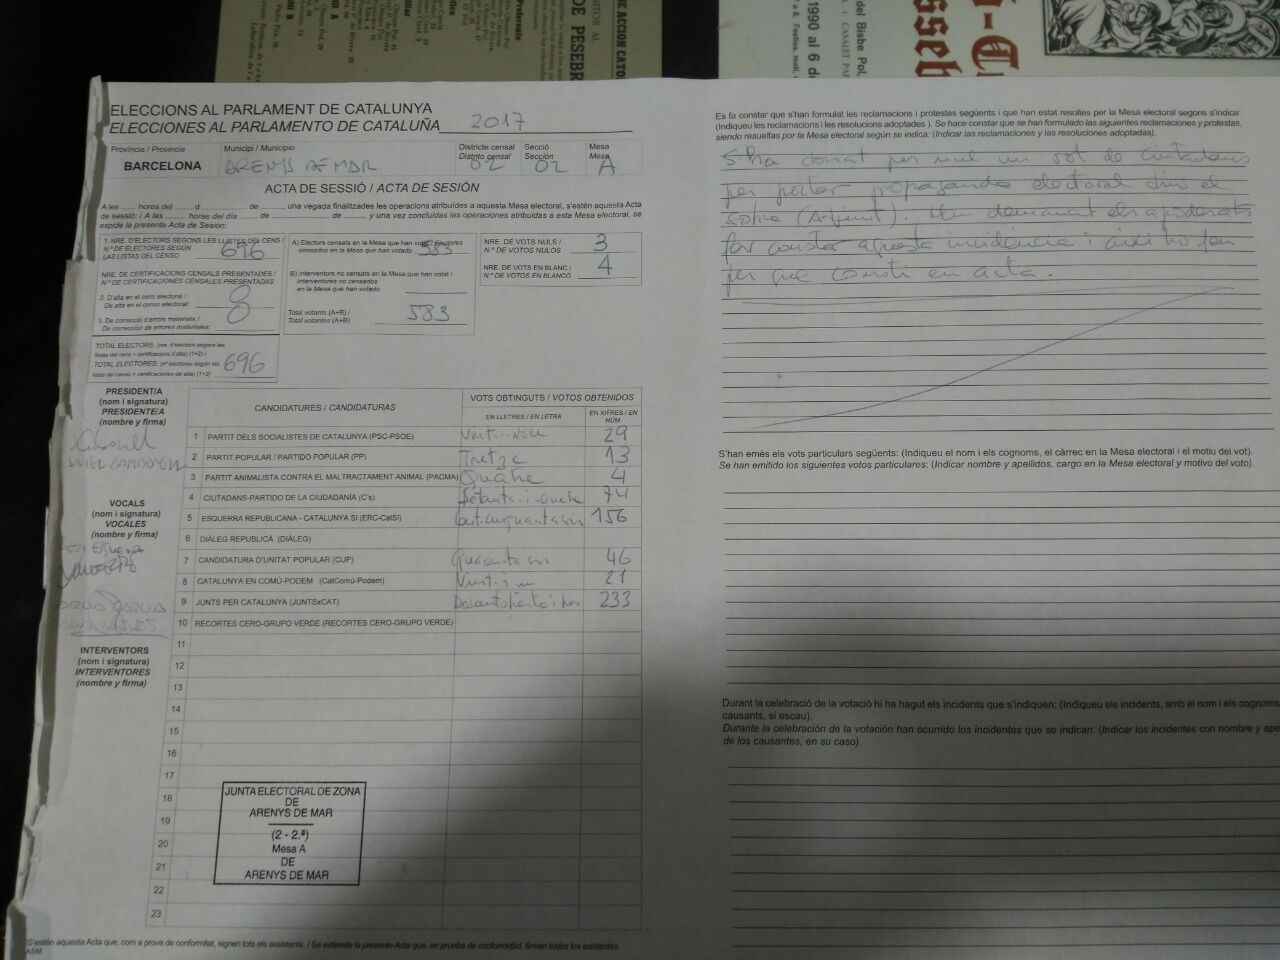 DE ACCION CATOL
DE PESEBR
1990 al 6 de
del Bisbe Pol,
ELECCIONS AL PARLAMENT DE CATALUNYA
ELECCIONES AL PARLAMENTO DE CATALUÑA 2017
Província / Provincia
BARCELONA
Municipi / Municipio
ARENYS DE MAR
Districte censal
Distrito censal
02
Secció
Sección
02
Mesa
Mesa
A
ACTA DE SESSIÓ / ACTA DE SESIÓN
A les ...... hores del ...... d ............... de ........, una vegada finalitzades les operacions atribuïdes a aquesta Mesa electoral, s'estén aquesta Acta
de sessió: / A las ........ horas del día ...... de ............... de ........, y una vez concluidas las operaciones atribuidas a esta Mesa electoral, se
expide la presente Acta de Sesión:
1. NRE. D'ELECTORS SEGONS LES LLISTES DEL CENS /
N.º DE ELECTORES SEGÚN
LAS LISTAS DEL CENSO
696
NRE. DE CERTIFICACIONS CENSALS PRESENTADES /
N.º DE CERTIFICACIONES CENSALES PRESENTADAS
2. D'alta en el cens electoral /
De alta en el censo electoral:
0
3. De correcció d'errors materials /
De corrección de errores materiales:
0
TOTAL ELECTORS: (nre. d'electors segons les
llistes del cens + certificacions d'alta) (1+2) /
TOTAL ELECTORES: (nº electores según las
listas del censo + certificaciones de alta) (1+2)
696
A) Electors censats en la Mesa que han votat / Electores
censados en la Mesa que han votado
583
B) Interventors no censats en la Mesa que han votat /
Interventores no censados
en la Mesa que han votado
Total votants (A+B) /
Total votantes (A+B)
583
NRE. DE VOTS NULS /
N.º DE VOTOS NULOS
3
NRE. DE VOTS EN BLANC /
N.º DE VOTOS EN BLANCO
4
PRESIDENT/A
(nom i signatura)
PRESIDENTE/A
(nombre y firma)
VOCALS
(nom i signatura)
VOCALES
(nombre y firma)
INTERVENTORS
(nom i signatura)
INTERVENTORES
(nombre y firma)
CANDIDATURES / CANDIDATURAS
VOTS OBTINGUTS / VOTOS OBTENIDOS
EN LLETRES / EN LETRA
EN XIFRES / EN NÚM.
1 PARTIT DELS SOCIALISTES DE CATALUNYA (PSC-PSOE) Vint-i-nou 29
2 PARTIT POPULAR / PARTIDO POPULAR (PP) Tretze 13
3 PARTIT ANIMALISTA CONTRA EL MALTRACTAMENT ANIMAL (PACMA) Quatre 4
4 CIUTADANS-PARTIDO DE LA CIUDADANÍA (C's) Setanta-i-quatre 74
5 ESQUERRA REPUBLICANA - CATALUNYA SI (ERC-CatSI) 156
6 DIÀLEG REPUBLICÀ (DIÀLEG)
7 CANDIDATURA D'UNITAT POPULAR (CUP) Quaranta sis 46
8 CATALUNYA EN COMÚ-PODEM (CatComú-Podem) Vint-i-un 21
9 JUNTS PER CATALUNYA (JUNTSxCAT) 233
10 RECORTES CERO-GRUPO VERDE (RECORTES CERO-GRUPO VERDE)
11
12
13
14
15
16
17
18
19
20
21
22
23
JUNTA ELECTORAL DE ZONA
DE
ARENYS DE MAR
(2 - 2.ª)
Mesa A
DE
ARENYS DE MAR
S'estén aquesta Acta que, com a prova de conformitat, signen tots els assistents. / Se extiende la presente Acta que, en prueba de conformidad, firman todos los asistentes.
ASM
Es fa constar que s'han formulat les reclamacions i protestes següents i que han estat resoltes per la Mesa electoral segons s'indica:
(Indiqueu les reclamacions i les resolucions adoptades ). Se hace constar que se han formulado las siguientes reclamaciones y protestas,
siendo resueltas por la Mesa electoral según se indica: (Indicar las reclamaciones y las resoluciones adoptadas).
S'ha donat per nul un vot de Ciutadans
per portar propaganda electoral dins el
sobre (Adjunt). Han demanat els apoderats
fer constar aquesta incidència i així ho fem
per que consti en acta.
S'han emès els vots particulars següents: (Indiqueu el nom i els cognoms, el càrrec en la Mesa electoral i el motiu del vot).
Se han emitido los siguientes votos particulares: (Indicar nombre y apellidos, cargo en la Mesa electoral y motivo del voto).
Durant la celebració de la votació hi ha hagut els incidents que s'indiquen: (Indiqueu els incidents, amb el nom i els cognoms
causants, si escau).
Durante la celebración de la votación han ocurrido los incidentes que se indican: (Indicar los incidentes con nombre y ape
de los causantes, en su caso).